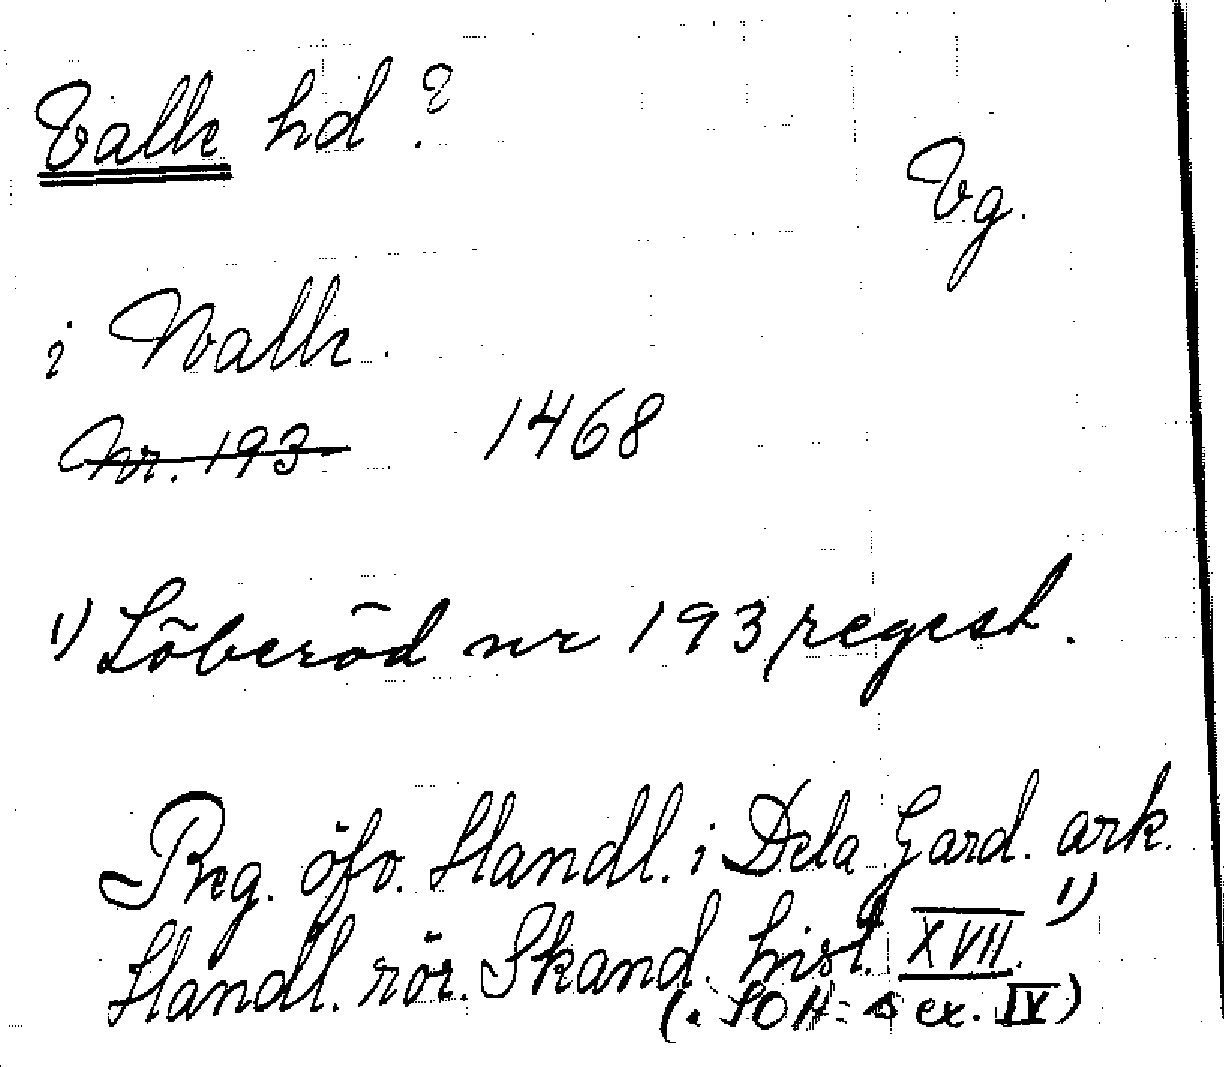 Valle hd ?
Vg.
i Walle.
Nr. 193 1468
1) Löberöd nr 193 regest.
Reg. öfv. Handl. i Dela Gard. ark.
Handl. rör. Skand. hist. XVII. 1)
(. SOH: s ex. IV)